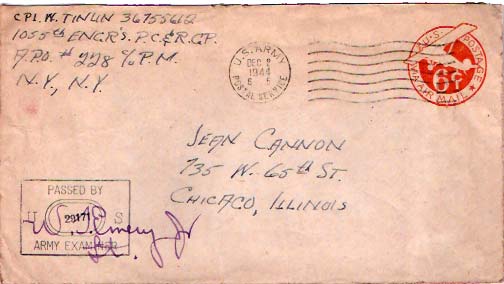 CPL. W. TINLIN 36755612
1055th ENGR'S. P.C.&R.GP.
A.P.O. # 228 % P.M.
N.Y., N.Y.
U.S. ARMY
DEC 2
1944
POSTAL SERVICE
U.S. POSTAGE
6¢
VIA AIR MAIL
JEAN CANNON
735 W. 65th ST.
CHICAGO, ILLINOIS
PASSED BY
U S
ARMY EXAMINER
W. J. Emery Jr